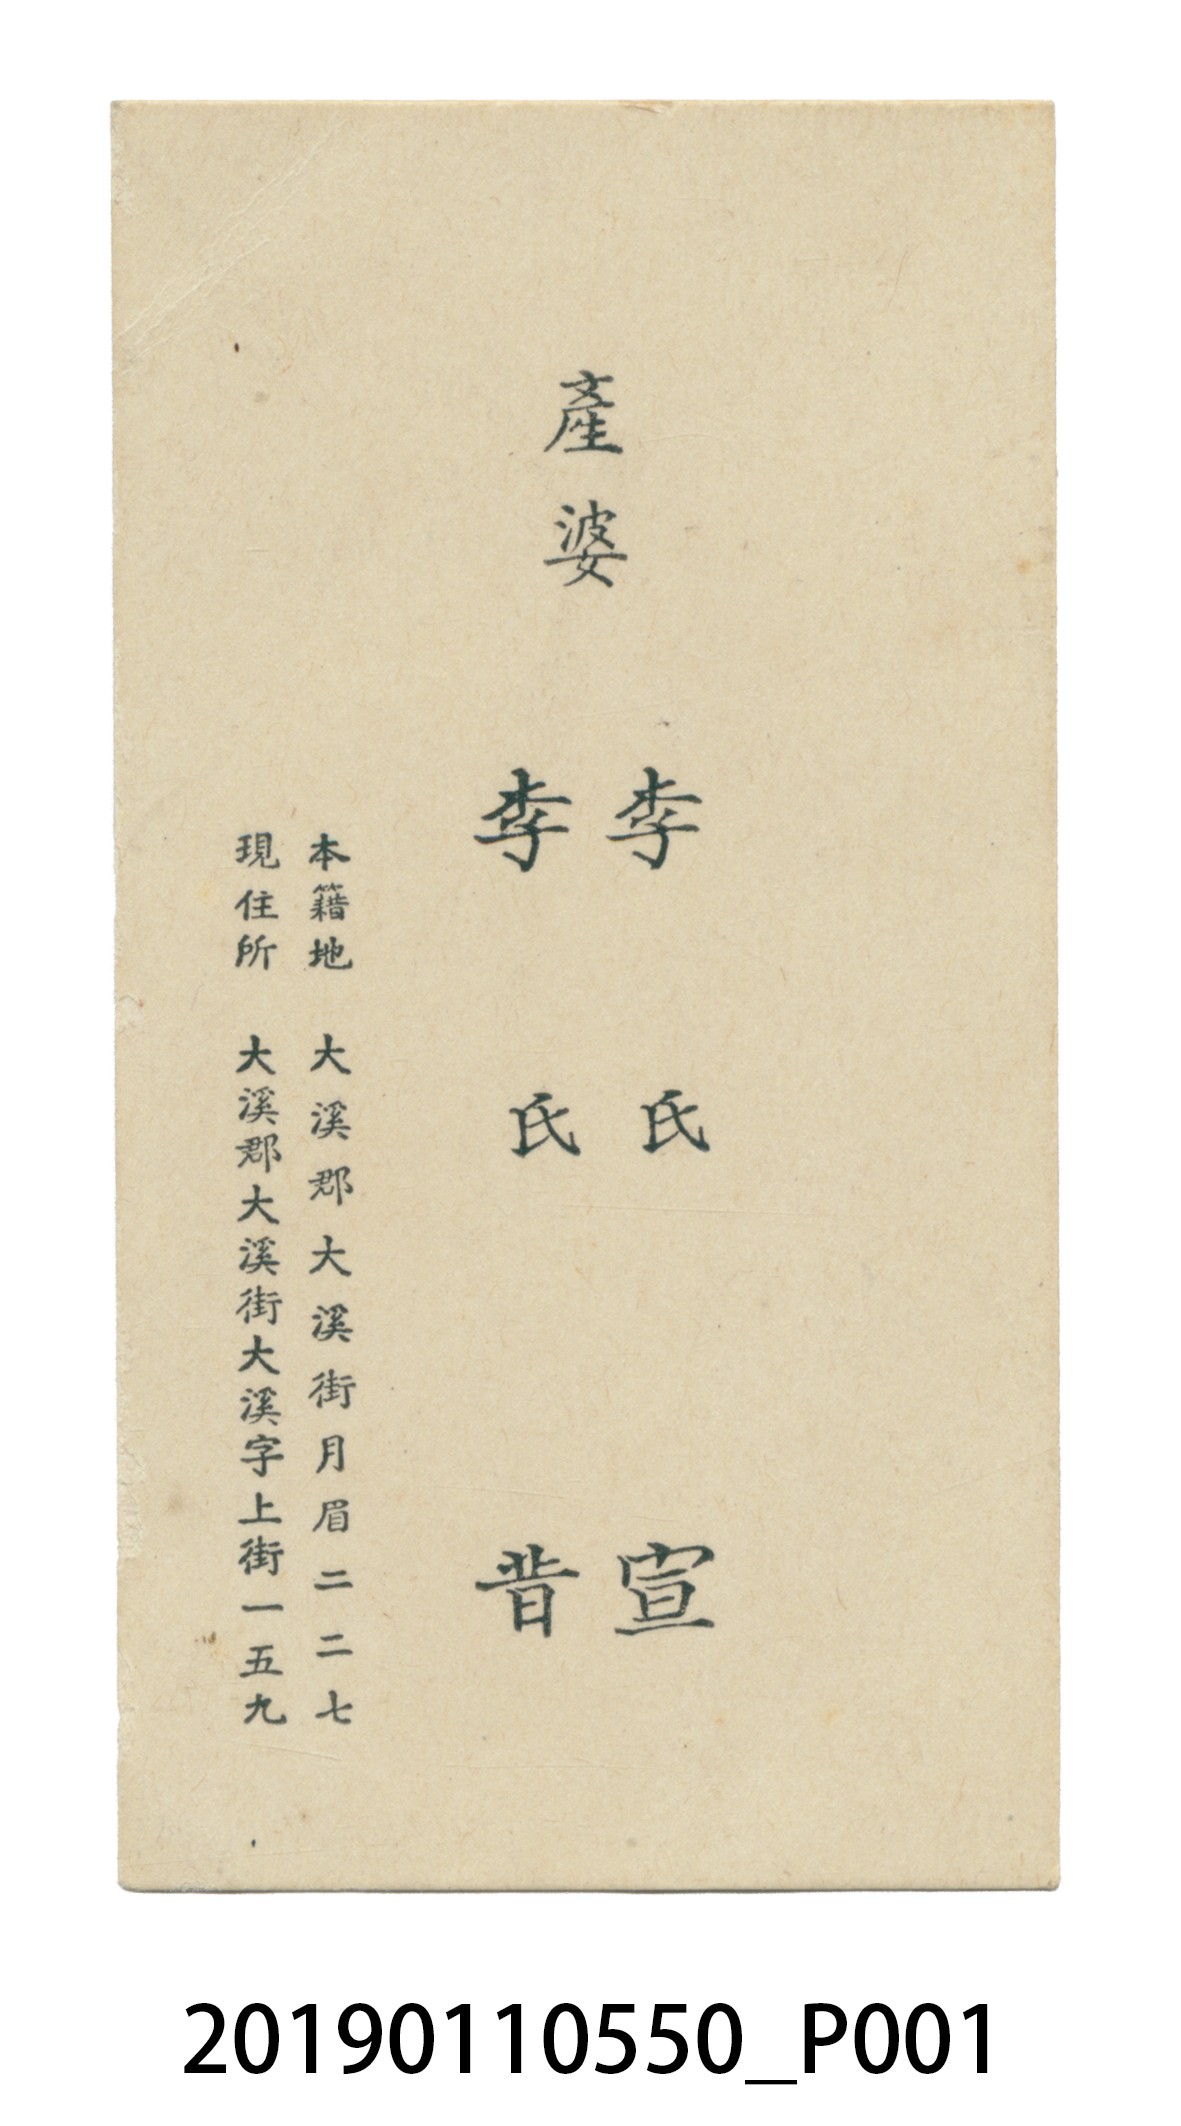 產婆
李氏宣
李氏昔
本籍地 大溪郡大溪街月眉二二七
現住所 大溪郡大溪街大溪字上街一五九
20190110550_P001